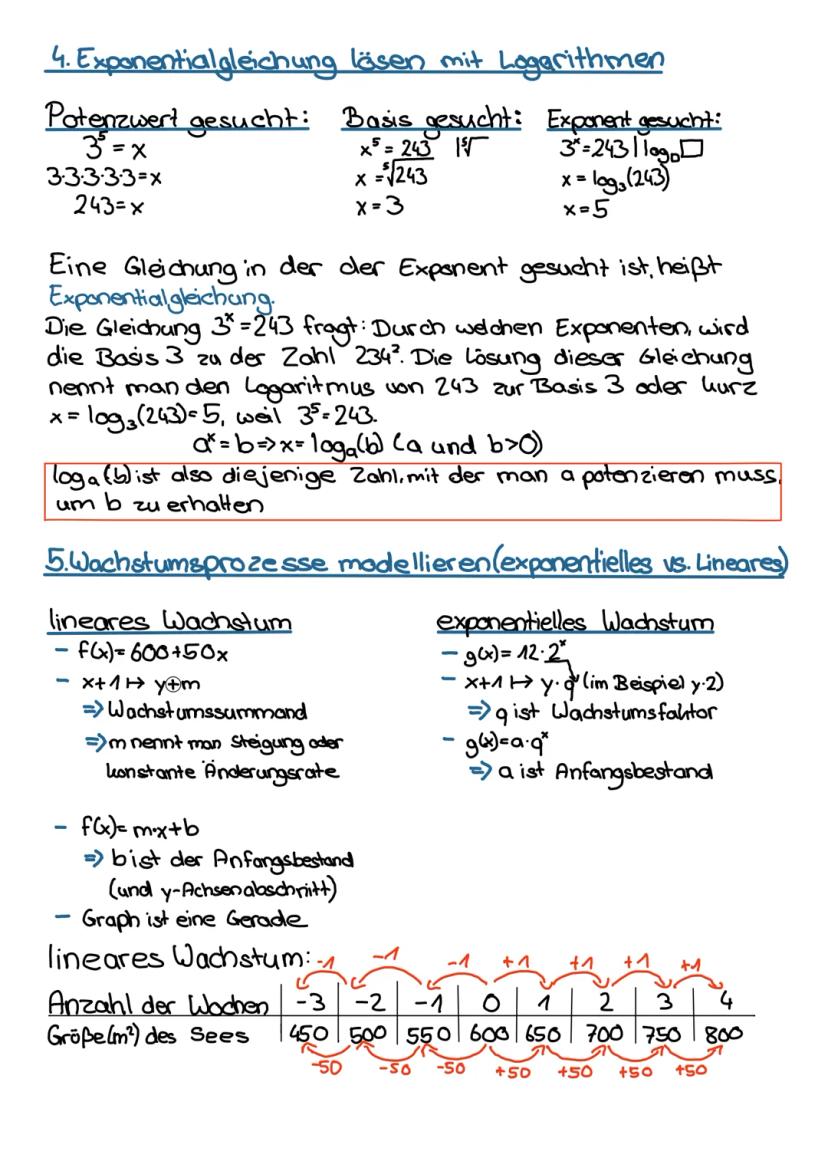 4. Exponentialgleichung lösen mit Logarithmen
Potenzwert gesucht: Basis gesucht: Exponent gesucht:
3⁵ = x x⁵ = 243 |⁵√ 3ˣ=243 | log₀□
3·3·3·3·3=x x = ⁵√243 x = log₃(243)
243=x x = 3 x = 5
Eine Gleichung in der der Exponent gesucht ist, heißt
Exponentialgleichung.
Die Gleichung 3ˣ=243 fragt: Durch welchen Exponenten, wird
die Basis 3 zu der Zahl 234?. Die Lösung dieser Gleichung
nennt man den Logaritmus von 243 zur Basis 3 oder kurz
x = log₃(243)=5, weil 3⁵=243.
aˣ = b => x = logₐ(b) (a und b>0)
logₐ(b) ist also diejenige Zahl, mit der man a potenzieren muss,
um b zu erhalten
5. Wachstumsprozesse modellieren (exponentielles vs. Lineares)
lineares Wachstum exponentielles Wachstum
- f(x)= 600+50x - g(x)= 12·2ˣ
- x+1 ↦ y⊕m - x+1 ↦ y·q (im Beispiel y·2)
=> Wachstumssummand => q ist Wachstumsfaktor
=> m nennt man Steigung oder - g(x)=a·qˣ
konstante Änderungsrate => a ist Anfangsbestand
- f(x)= m·x+b
=> b ist der Anfangsbestand
(und y-Achsenabschnitt)
- Graph ist eine Gerade
lineares Wachstum: -1 -1 -1 +1 +1 +1 +1
Anzahl der Wochen -3 -2 -1 0 1 2 3 4
Größe (m²) des Sees 450 500 550 600 650 700 750 800
-50 -50 -50 +50 +50 +50 +50